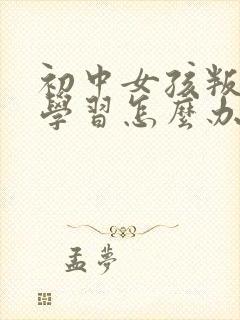 初中女孩叛
學習怎麼办
孟夢